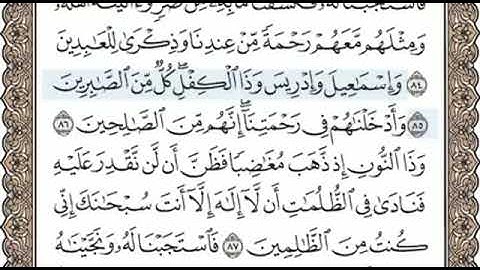 فَٱسْتَجَبْنَا لَهُۥ فَكَشَفْنَا مَا بِهِۦ مِن ضُرٍّۢ وَءَاتَيْنَٰهُ أَهْلَهُۥ
وَمِثْلَهُم مَّعَهُمْ رَحْمَةً مِّنْ عِندِنَا وَذِكْرَىٰ لِلْعَٰبِدِينَ
٨٤ وَإِسْمَٰعِيلَ وَإِدْرِيسَ وَذَا ٱلْكِفْلِ ۖ كُلٌّ مِّنَ ٱلصَّٰبِرِينَ
٨٥ وَأَدْخَلْنَٰهُمْ فِى رَحْمَتِنَآ ۖ إِنَّهُم مِّنَ ٱلصَّٰلِحِينَ ٨٦
وَذَا ٱلنُّونِ إِذ ذَّهَبَ مُغَٰضِبًا فَظَنَّ أَن لَّن نَّقْدِرَ عَلَيْهِ
فَنَادَىٰ فِى ٱلظُّلُمَٰتِ أَن لَّآ إِلَٰهَ إِلَّآ أَنتَ سُبْحَٰنَكَ إِنِّى
كُنتُ مِنَ ٱلظَّٰلِمِينَ ٨٧ فَٱسْتَجَبْنَا لَهُۥ وَنَجَّيْنَٰهُ